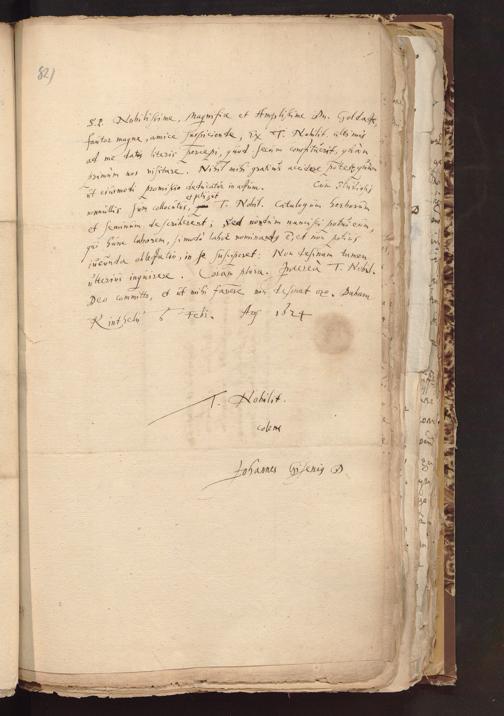 82)
S.P. Nobilissime, Magnifice et Amplissime Dn. Goldaste,
fautor magne, amice suspiciende, Ex T. Nobilit. ultimis
ad me datis literis percepi, quod secum constituerit, quam
primum nos visitare. Nihil mihi gratius accidere potest, quam
ut eiusmodi promissio deducatur in actum. Cum Studiosis
nonnullis sum collocutus, et petii ut T. Nobil. Catalogum herborum
et seminum describerent, sed nondum nancisci potui eum,
qui hunc laborem, si modo labor nominandus est, et non potius
iucunda oblectatio, in se susciperet: Non desinam tamen
ulterius inquirere. Coram plura. Interea T. Nobil.
Deo committo, et ut mihi favere non desinat oro. Dabam
Rinthelii 6 Feb. 1624
T. Nobilit.
colens
Johannes Gisenius D